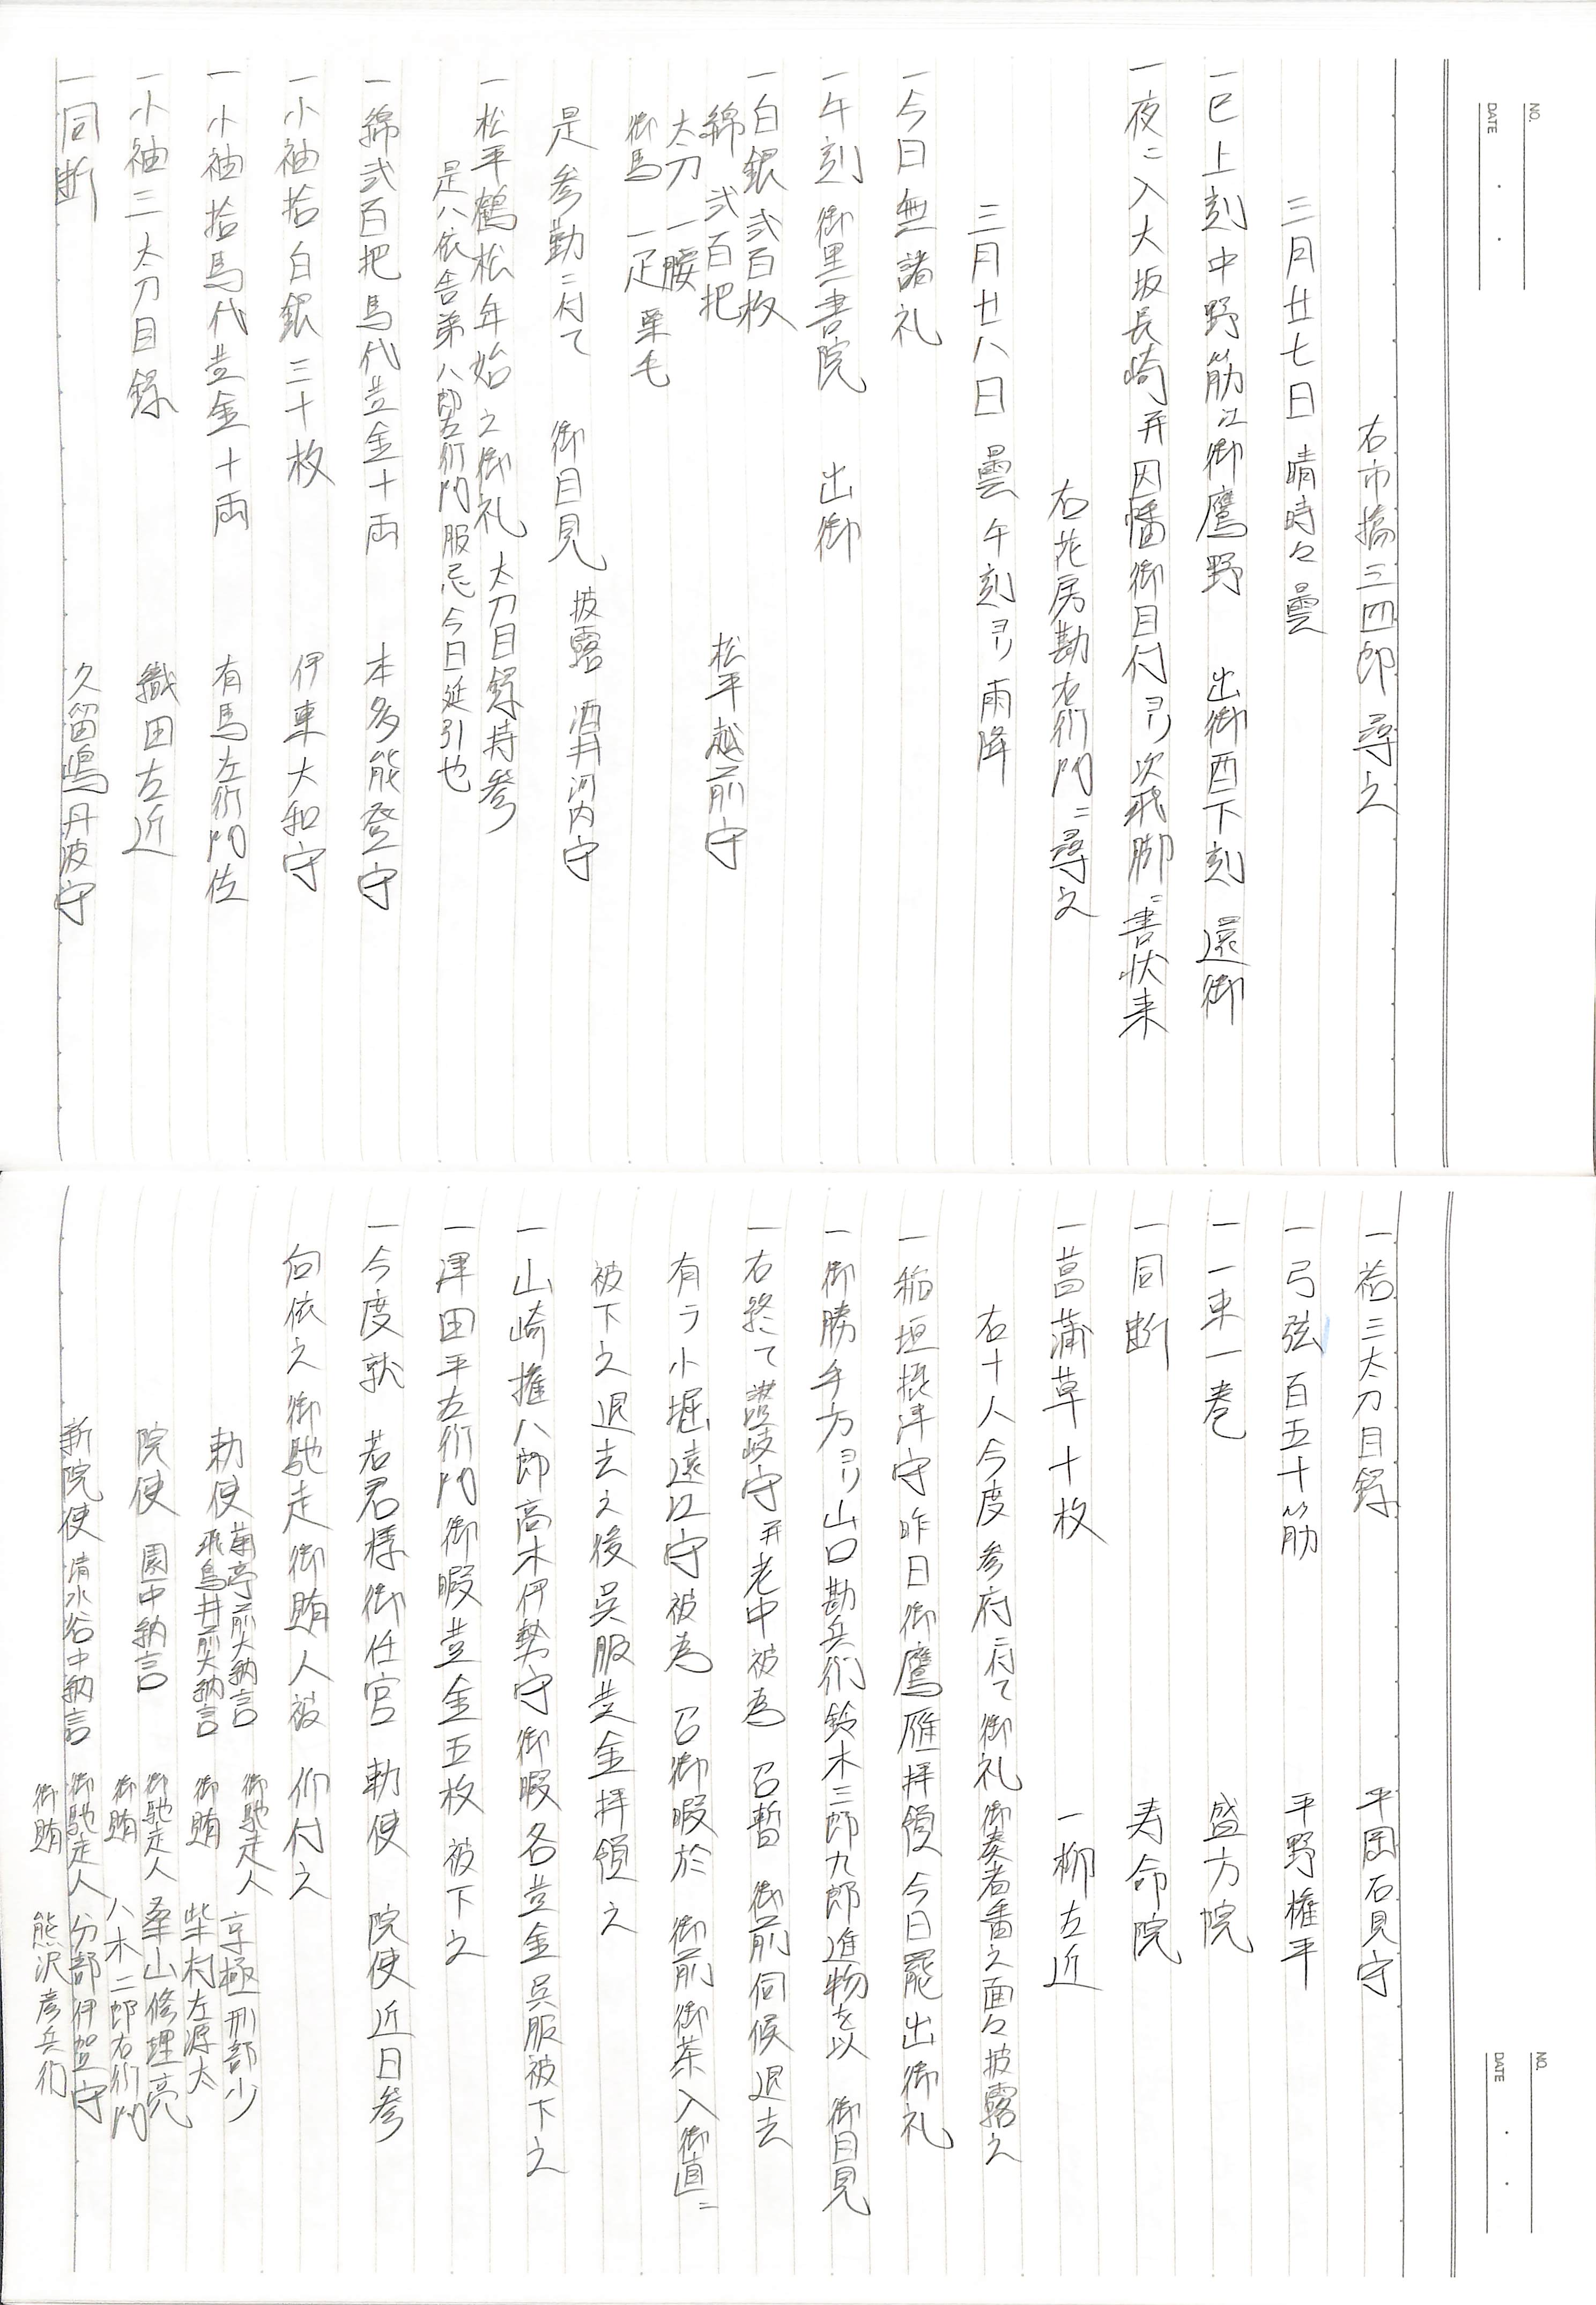 NO.
DATE
右市橋三四郎尋之
三月廿七日 晴時々曇
一巳上刻中野筋江御鷹野 出御酉下刻 還御
一夜ニ入大坂長崎并因幡御目付ヨリ次飛脚ニ書状来
右花房勘右衛門ニ尋之
三月廿八日 曇 午刻ヨリ雨降
一今日無諸礼
一午刻 御黒書院 出御
一白銀弐百枚
綿 弐百把
太刀 一腰
松平越前守
御馬 一疋 栗毛
是参勤ニ付て 御目見 披露 酒井河内守
一松平鶴松年始之御礼 太刀目録持参
是ハ依舎弟八郎右衛門服忌今日延引也
一綿弐百把馬代黄金十両 本多能登守
一小袖拾白銀三十枚 伊東大和守
一小袖拾馬代黄金十両 有馬左衛門佐
一小袖三太刀目録 織田左近
一同断 久留嶋丹波守
NO.
DATE
一袷三太刀目録 平岡石見守
一弓弦百五十筋 平野権平
一一束一巻 盛方院
一同断 寿命院
一菖蒲草十枚 一柳左近
右十人今度参府ニ付て御礼御奏者番之面々披露之
一稲垣摂津守昨日御鷹雁拝領今日罷出御礼
一御勝手方ヨリ山口勘兵衛鈴木三郎九郎進物を以 御目見
一右終て讃岐守并老中被為 召暫 御前伺候退去
有テ小堀遠江守被為 召御暇於 御前御茶入御直ニ
被下之退去之後呉服黄金拝領之
一山崎権八郎高木伊勢守御暇各黄金呉服被下之
一津田平左衛門御暇黄金五枚被下之
一今度就 若君様御任官 勅使 院使近日参
向依之御馳走御賄人被 仰付之
勅使 菊亭前大納言 御馳走人 京極刑部少
飛鳥井前大納言 御賄 柴村左源太
院使 園中納言 御馳走人 桑山修理亮
御賄 八木二郎右衛門
新院使 清水谷中納言 御馳走人 分部伊賀守
御賄 熊沢彦兵衛